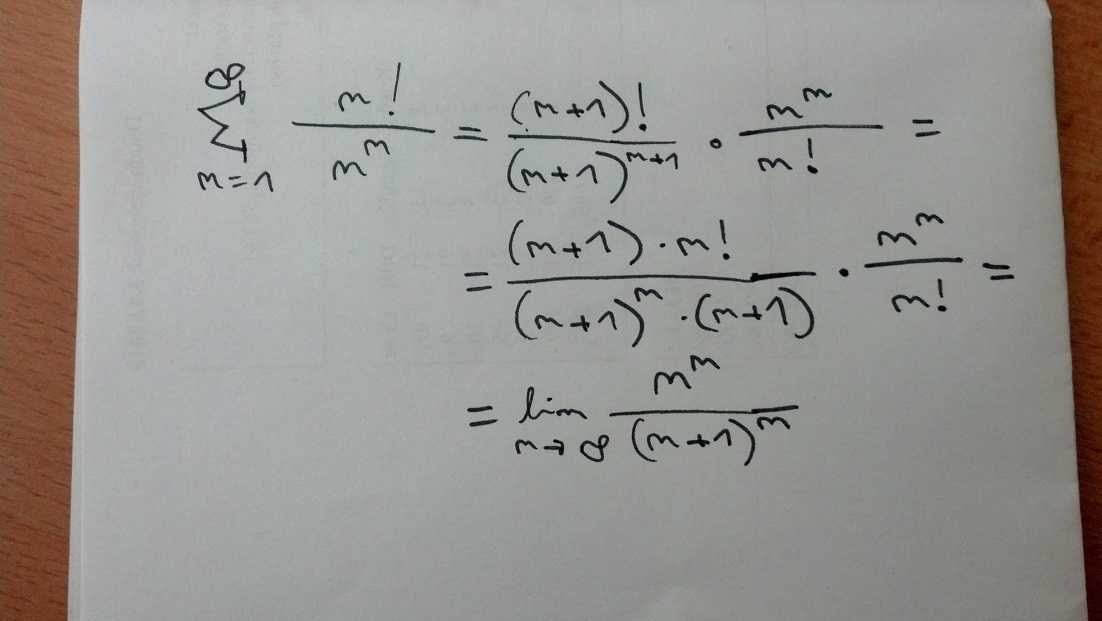 ∞ ∑ n=1 n!/n^n = (n+1)!/(n+1)^(n+1) · n^n/n! =
= (n+1)·n!/((n+1)^n·(n+1)) · n^n/n! =
= lim n→∞ n^n/(n+1)^n